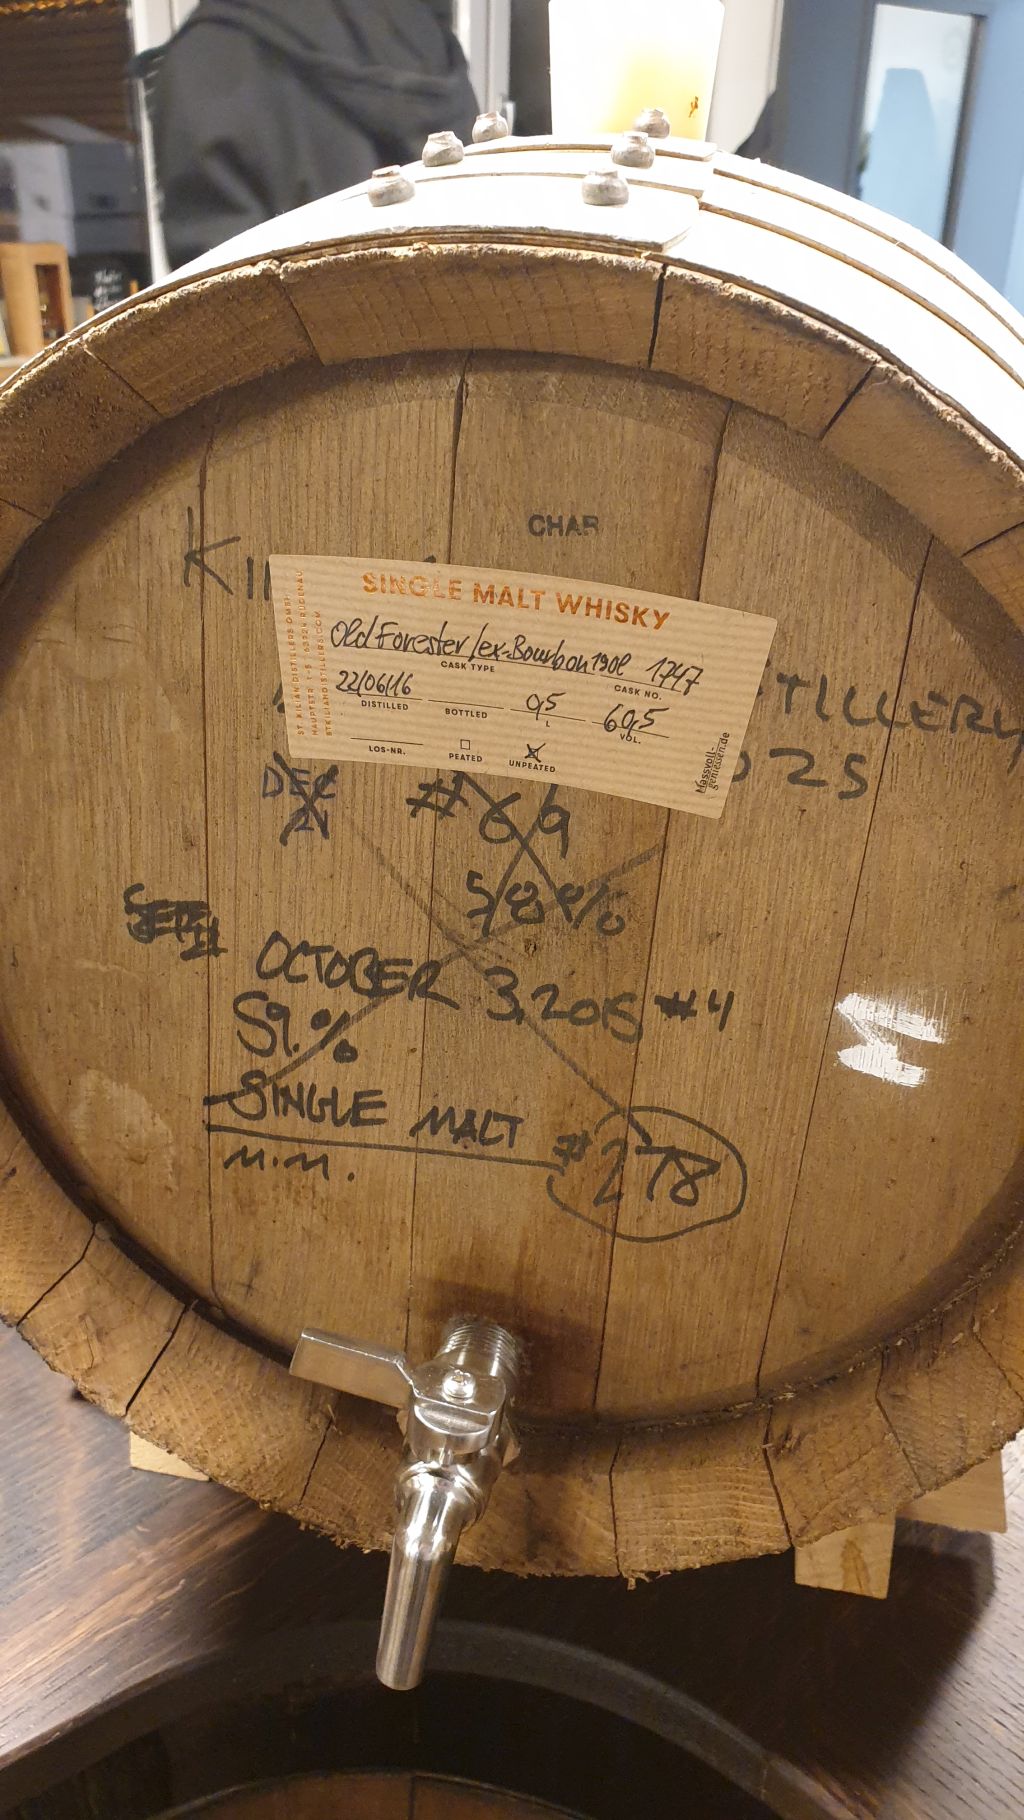 CHAR
SINGLE MALT WHISKY
Old Forester/ex-Bourbon 190l 1747
CASK TYPE CASK NO.
22/06/16 0,5 60,5
DISTILLED BOTTLED L VOL.
LOS-NR. PEATED UNPEATED
ST. KILIAN DISTILLERS GMBH
HAUPTSTR. 1-5 · 63924 RÜDENAU
STKILIANDISTILLERS.COM
Massvoll-
geniessen.de
TILLERY
025
DEC
21
#69
58%
OCTOBER 3, 2015 #4
59.%
SINGLE MALT
M.M. #278